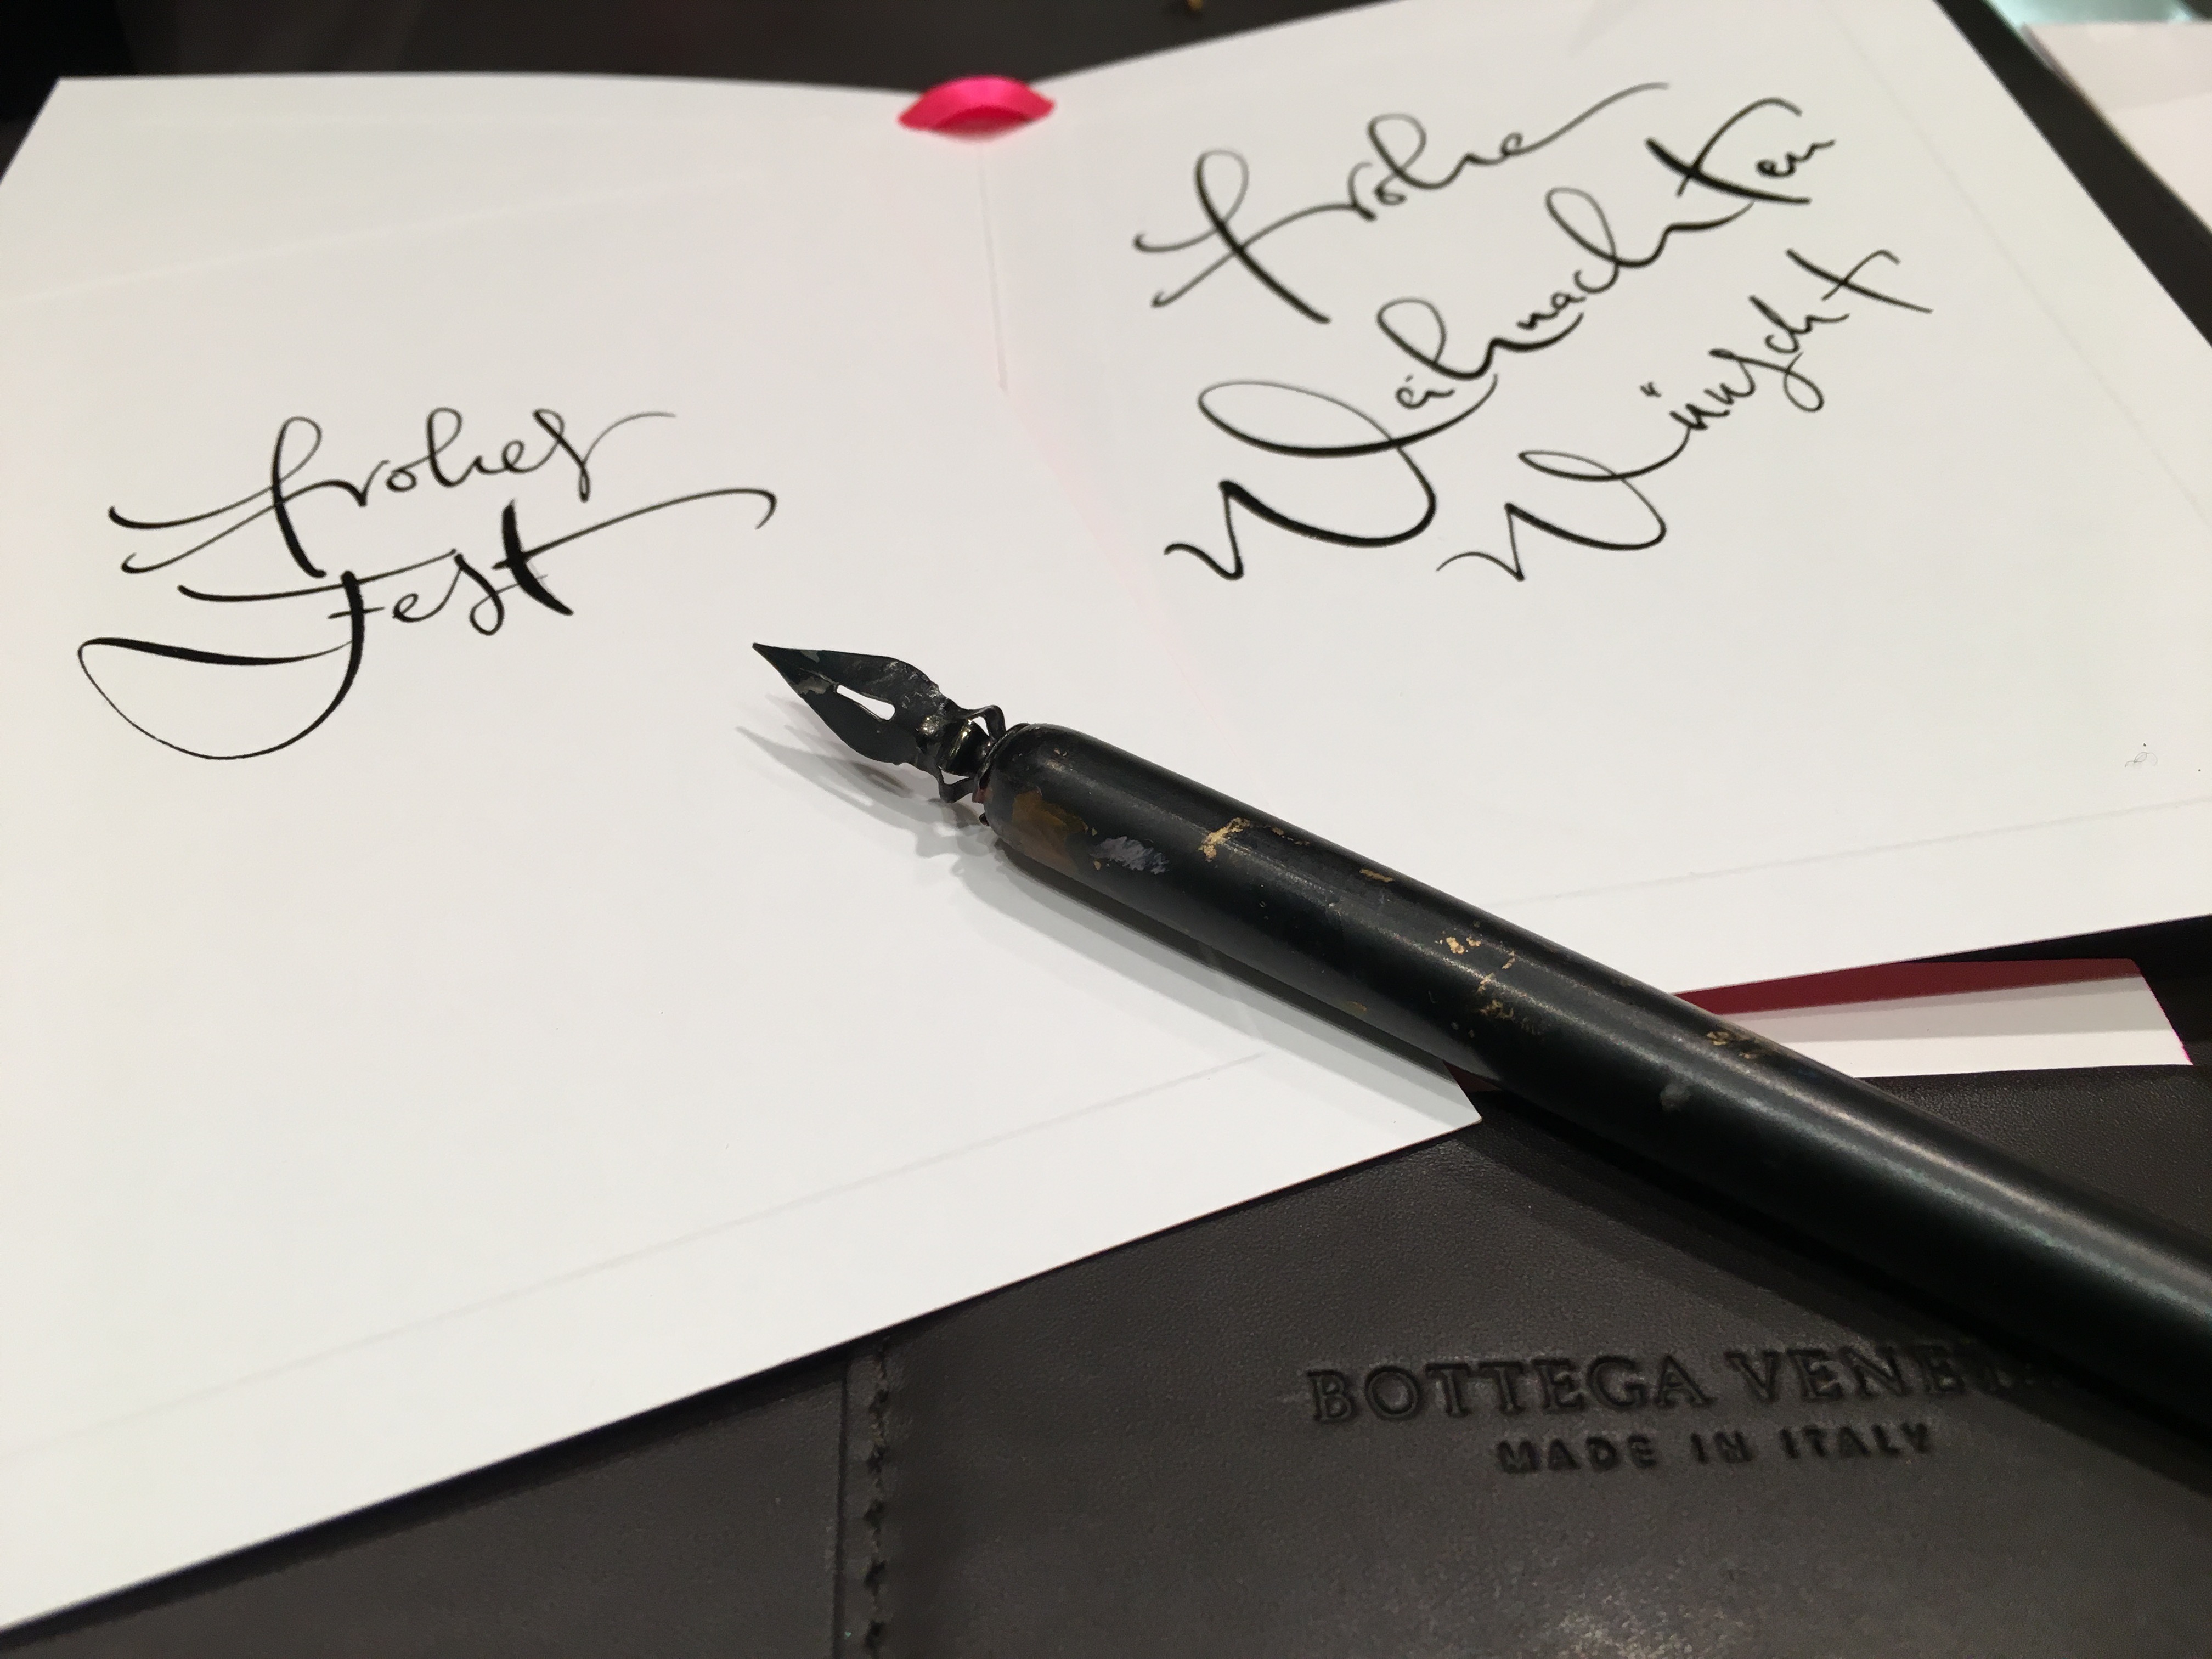 frohes
Fest
frohe
Weihnachten
Wünscht
BOTTEGA VENE
MADE IN ITALY